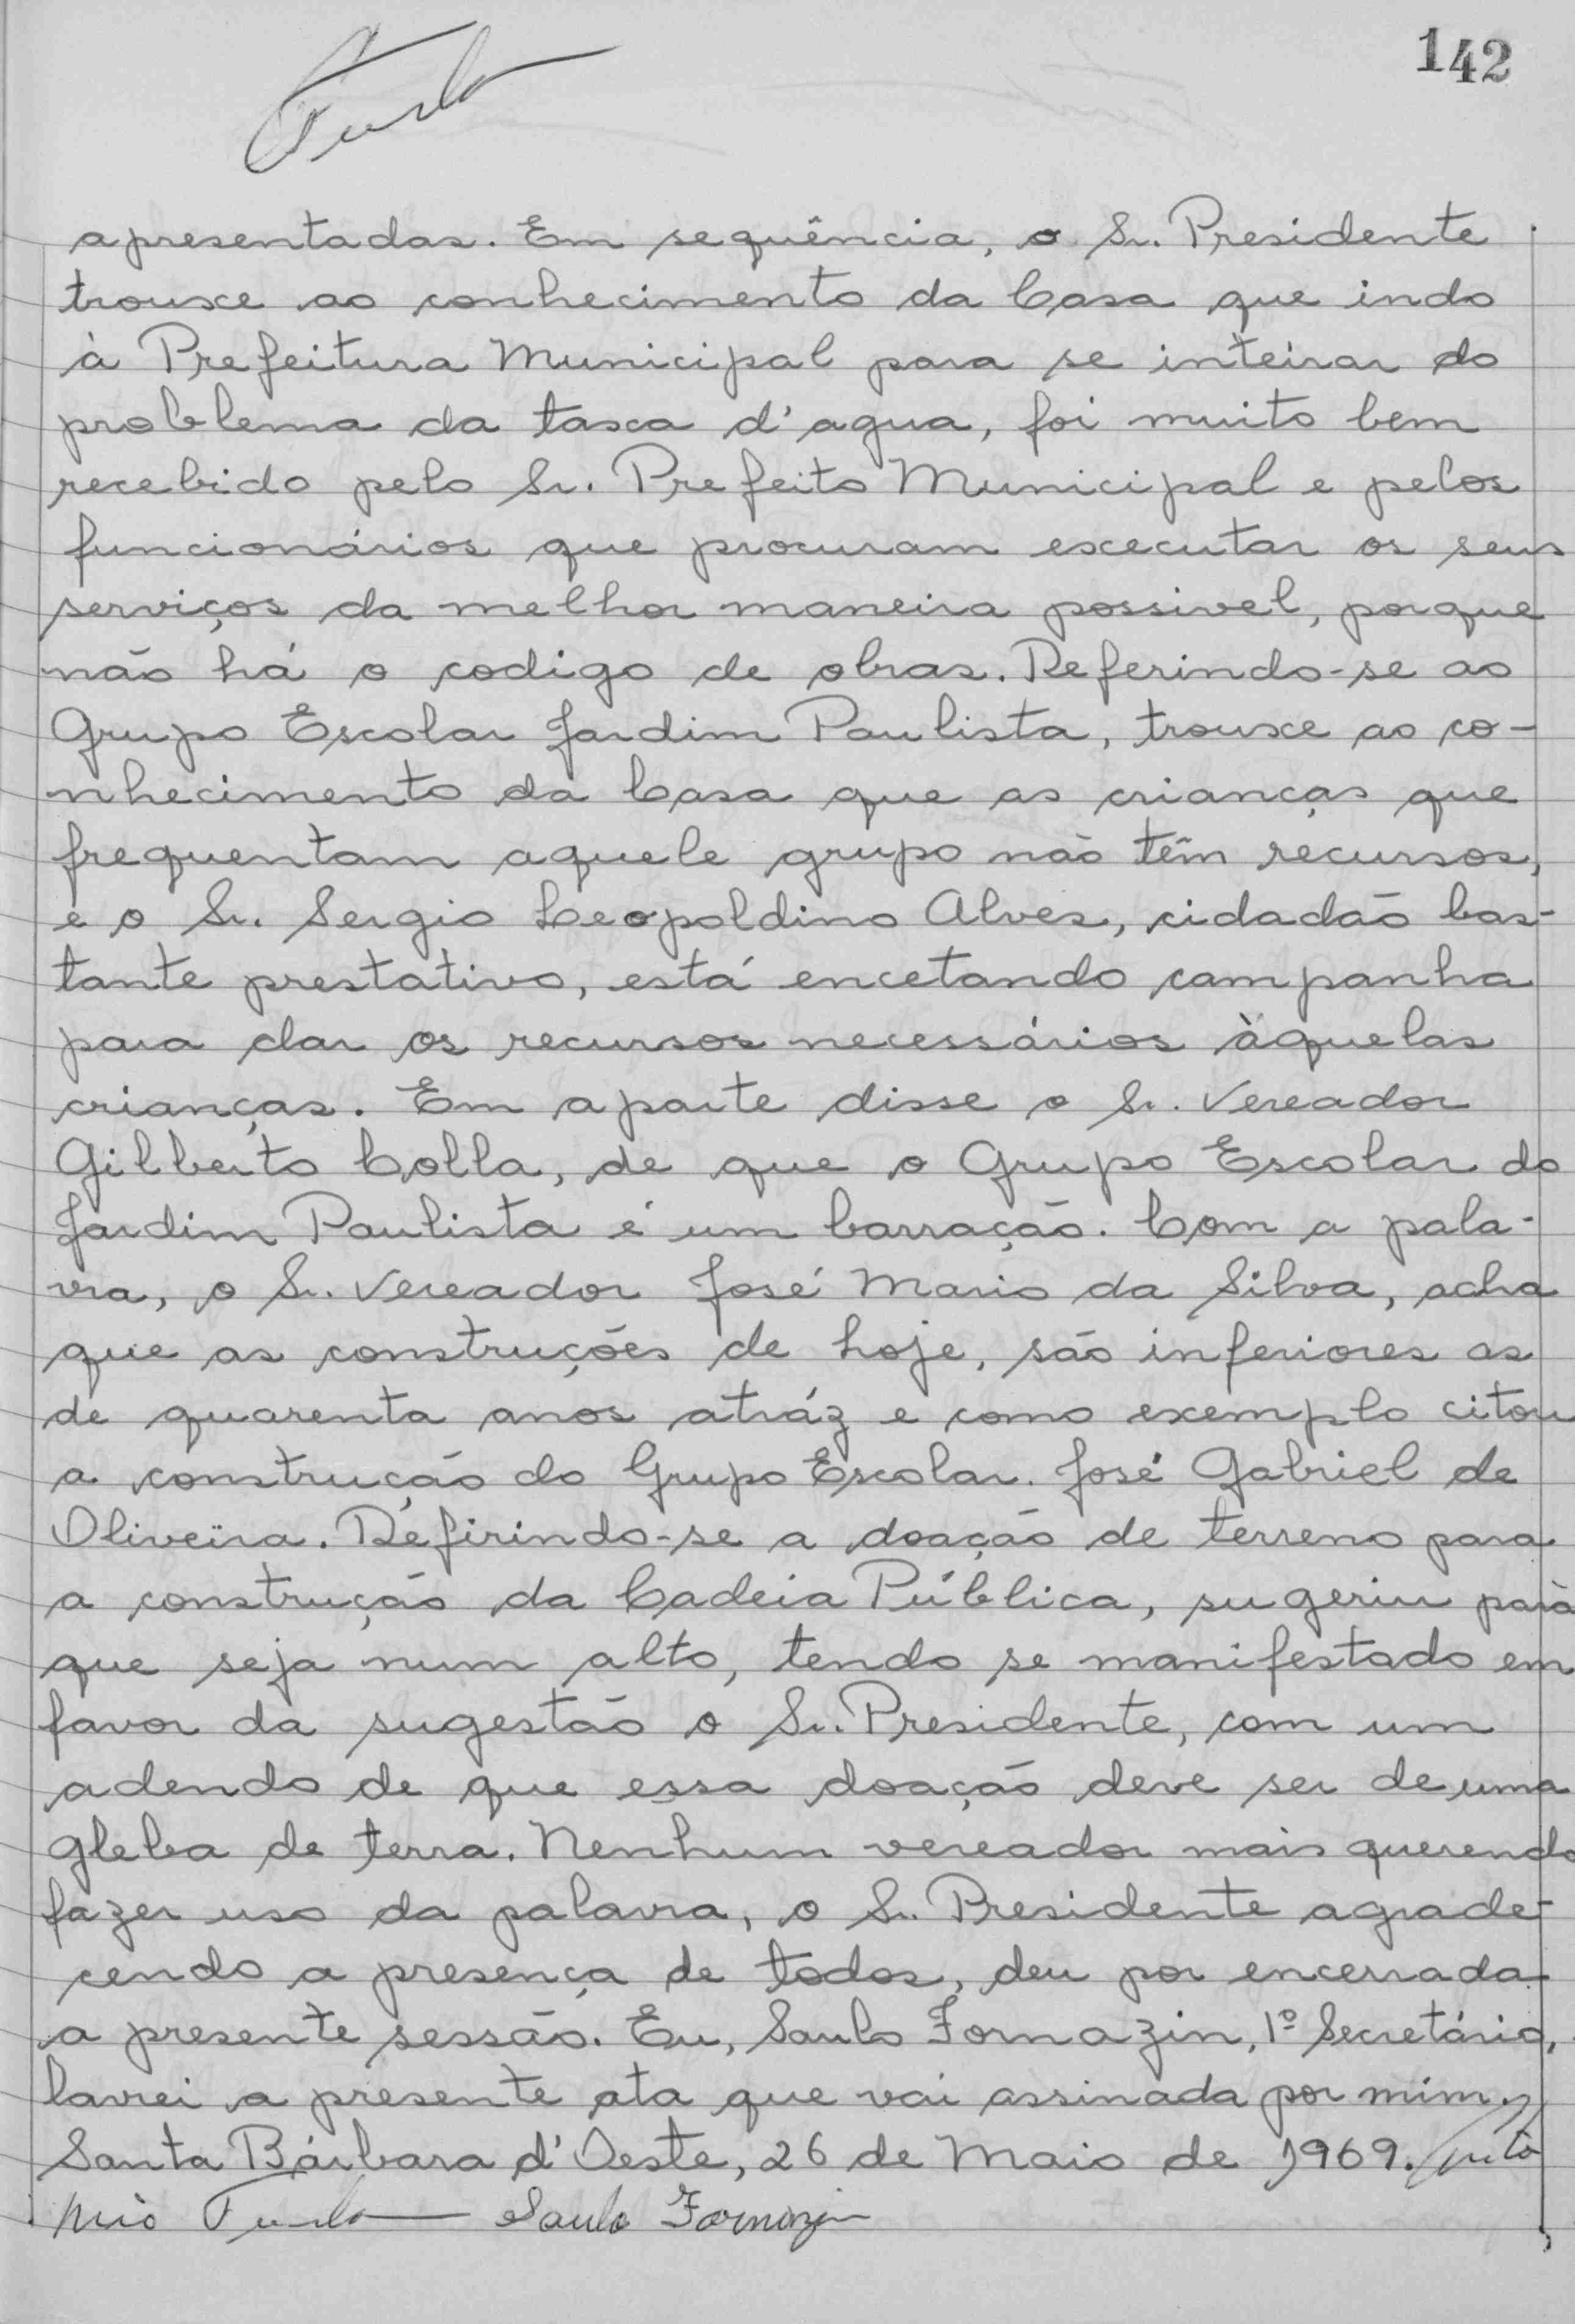 142
Furlan
apresentadas. Em sequência, o Sr. Presidente
trouxe ao conhecimento da Casa que indo
à Prefeitura Municipal para se inteirar do
problema da taxa d'agua, foi muito bem
recebido pelo Sr. Prefeito Municipal e pelos
funcionários que procuram executar os seus
serviços da melhor maneira possivel, porque
não há o codigo de obras. Referindo-se ao
Grupo Escolar Jardim Paulista, trouxe ao co-
nhecimento da Casa que as crianças que
frequentam aquele grupo não têm recursos,
e o Sr. Sergio Leopoldino Alves, cidadão bas-
tante prestativo, está encetando campanha
para dar os recursos necessários àquelas
crianças. Em aparte disse o Sr. Vereador
Gilberto Colla, de que o Grupo Escolar do
Jardim Paulista é um barração. Com a pala-
vra, o Sr. Vereador José Mario da Silva, acha
que as construções de hoje, são inferiores as
de quarenta anos atráz e como exemplo citou
a construção do Grupo Escolar José Gabriel de
Oliveira. Refirindo-se a doação de terreno para
a construção da Cadeia Pública, sugeriu para
que seja num alto, tendo se manifestado em
favor da sugestão o Sr. Presidente, com um
adendo de que essa doação deve ser de uma
gleba de terra. Nenhum vereador mais querendo
fazer uso da palavra, o Sr. Presidente agrade-
cendo a presença de todos, deu por encerrada
a presente sessão. Eu, Saulo Fornazin, 1º Secretário,
lavrei a presente ata que vai assinada por mim.
Santa Bárbara d'Oeste, 26 de Maio de 1969.
Furlan Saulo Fornazin